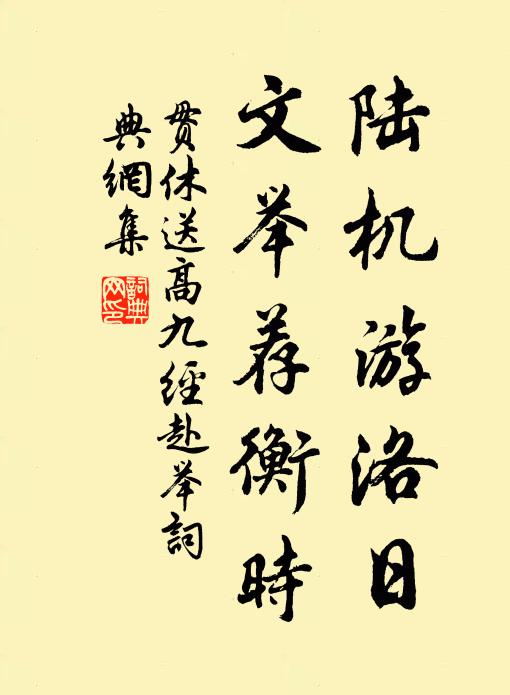 陆机游洛日
文举荐衡時
贯休送高九經赴举詞
典網集
詞典网印